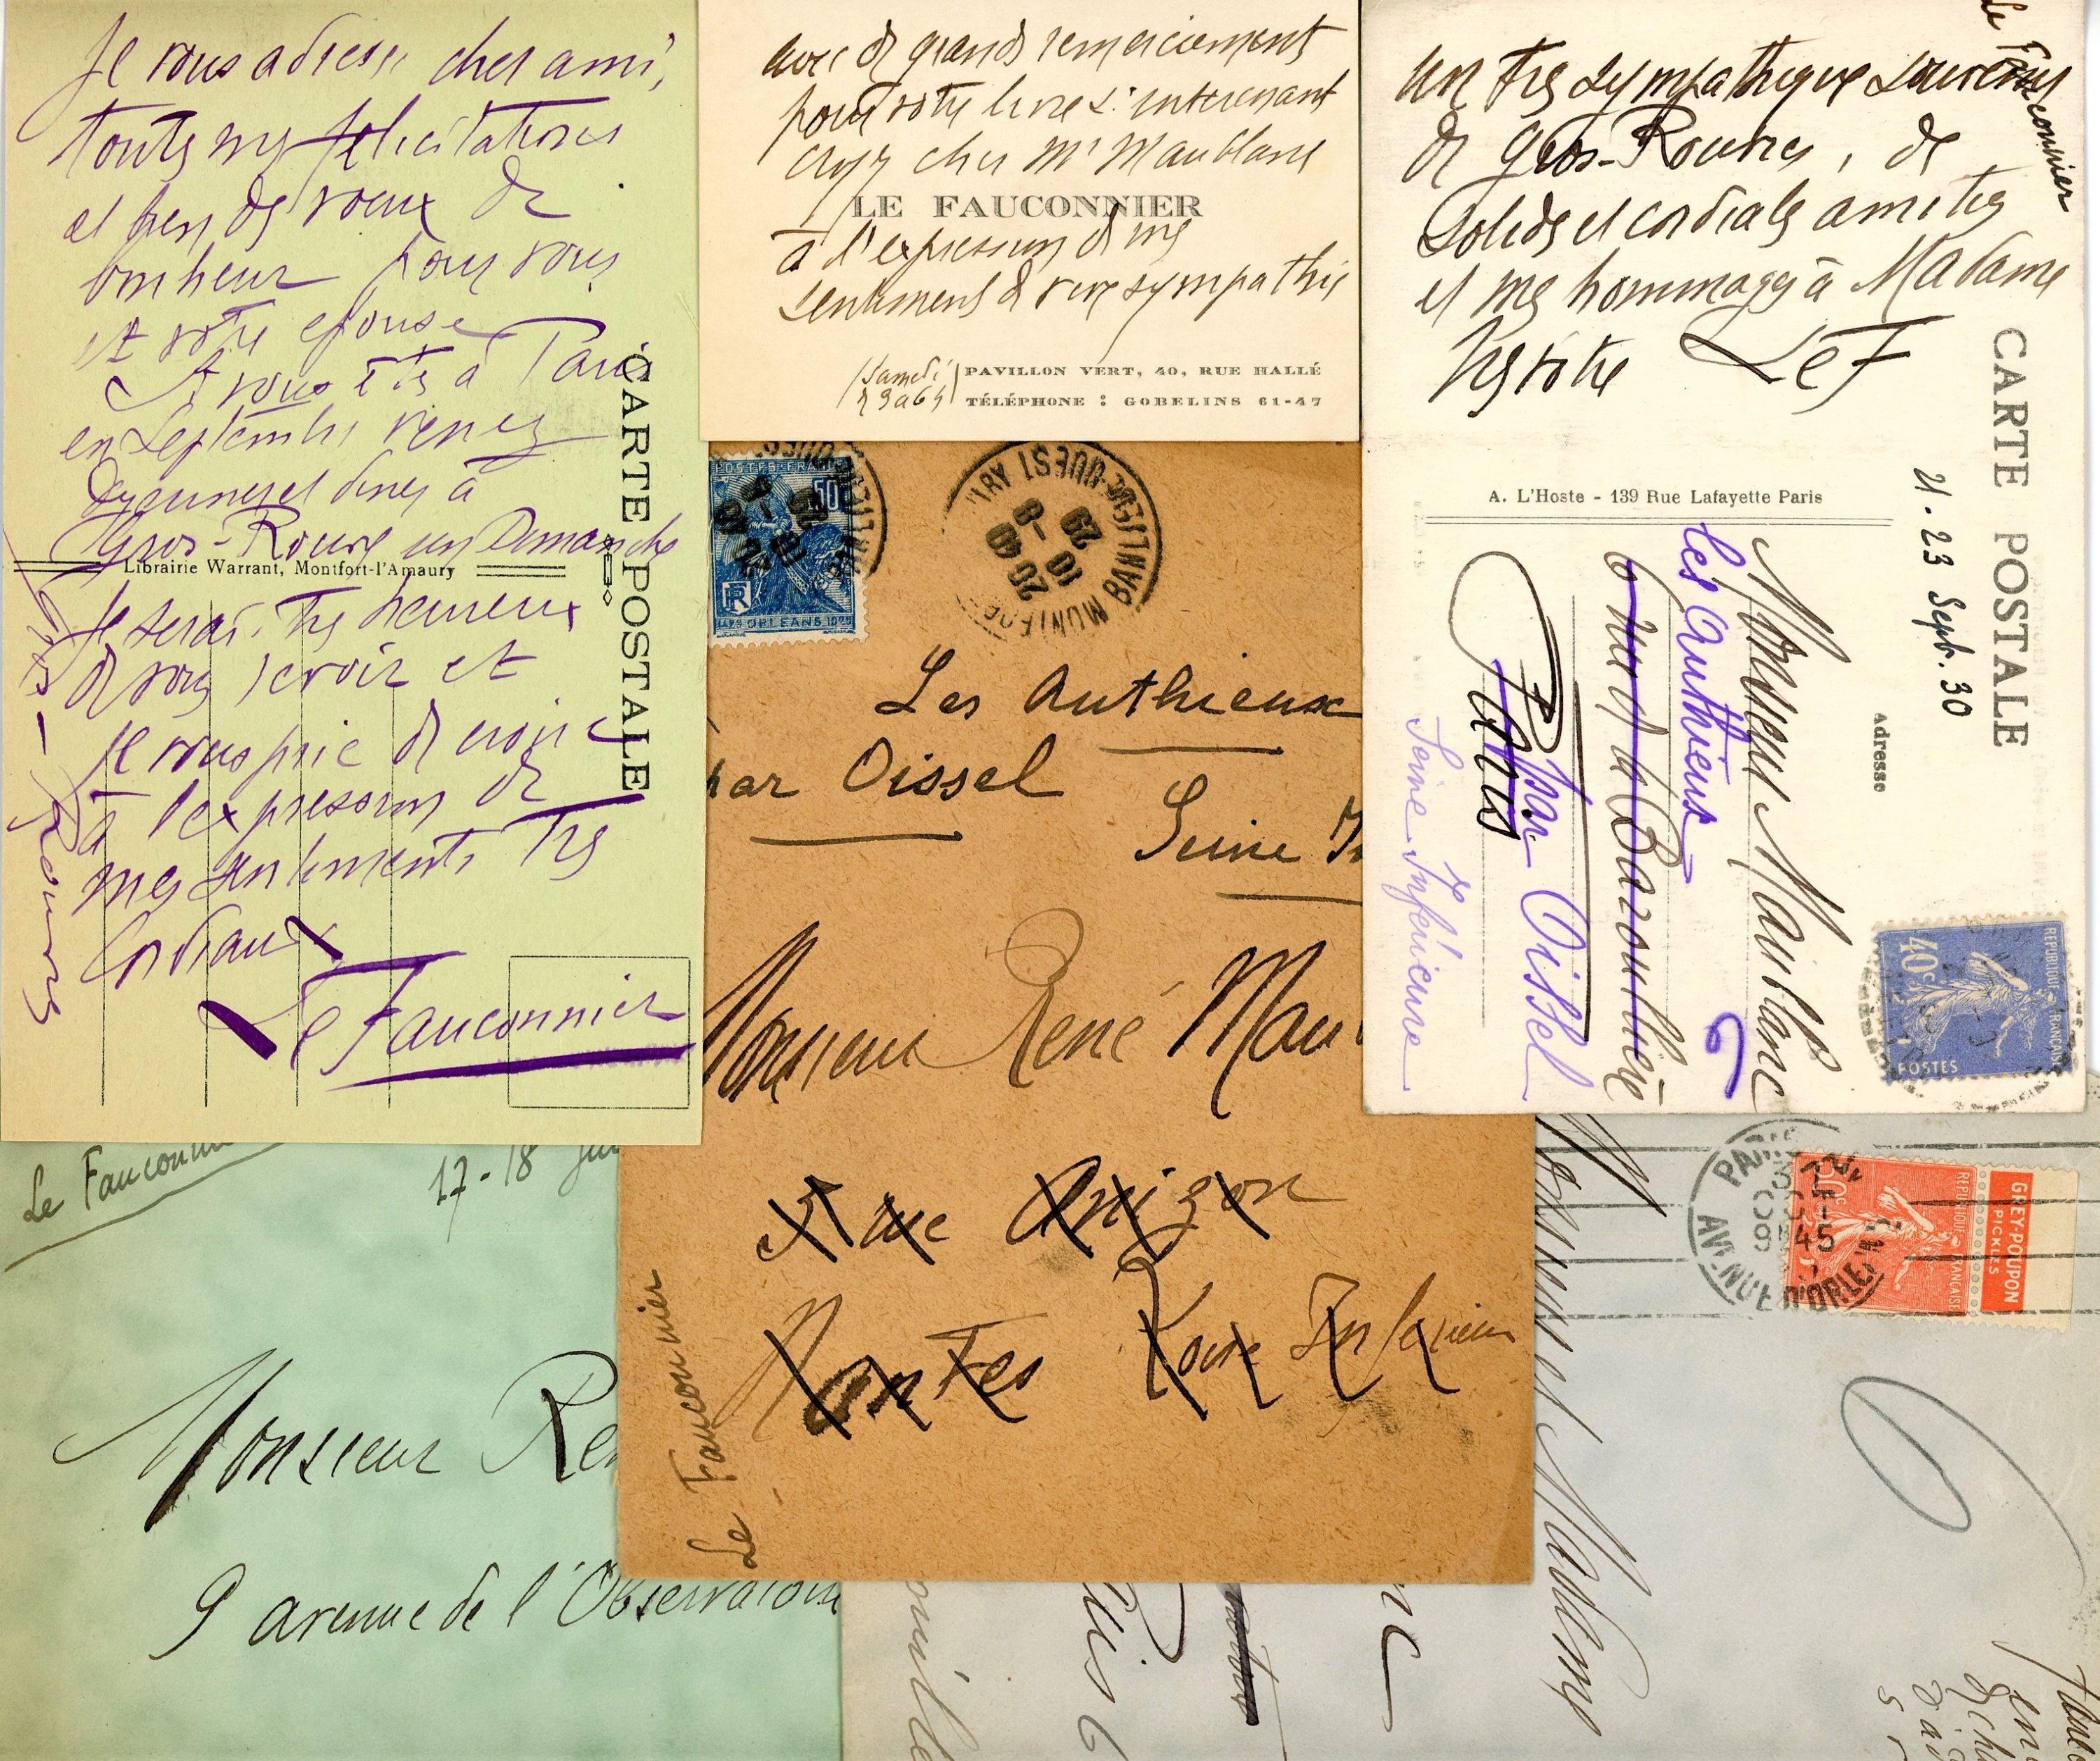 Je vous adresse cher ami,
toutes mes félicitations
et bien des vœux de
bonheur pour vous
et votre épouse
Si vous êtes à Paris
en Septembre venez
déjeuner et diner à
Gros-Rouvre un Dimanche
Librairie Warrant, Montfort-l'Amaury
Je serai très heureux
de vous revoir et
je vous prie de croire
à l'expression de
mes sentiments très
cordiaux
Le Fauconnier
Gros-Rouvres
CARTE POSTALE
avec de grands remerciements
pour votre livre si intéressant
croyez cher Mr Maublanc
LE FAUCONNIER
à l'expression de mes
sentiments de vive sympathie
Samedi
PAVILLON VERT, 40, RUE HALLÉ
TÉLÉPHONE : GOBELINS 61-47
Le Fauconnier
Un très sympathique souvenir
de Gros-Rouvres, de
solides et cordiales amitiés
et mes hommages à Madame
Très vôtre Le F
A. L'Hoste - 139 Rue Lafayette Paris
CARTE POSTALE
21-23 Sept. 30
Adresse
Monsieur Maublanc
Les Authieux
6 rue de la Barouillère
6
Par Oissel
Paris
Seine Inférieure
REPUBLIQUE FRANÇAISE
40c
POSTES
POSTES FRANCE
50c
RF
ORLEANS 1929
20 40
10 - 9
29
Les Authieux
par Oissel
Seine
Monsieur René Mau
5 rue Anizon
Nantes Loire Inférieure
Le Fauconnier
Le Fauconni
17-18
Monsieur Re
9 avenue de l'Observatoire
PARIS
AVENUE D'ORLEANS
50c
REPUBLIQUE FRANÇAISE
GREY-POUPON
PICKLES
Monsieur et Madame
6
nc